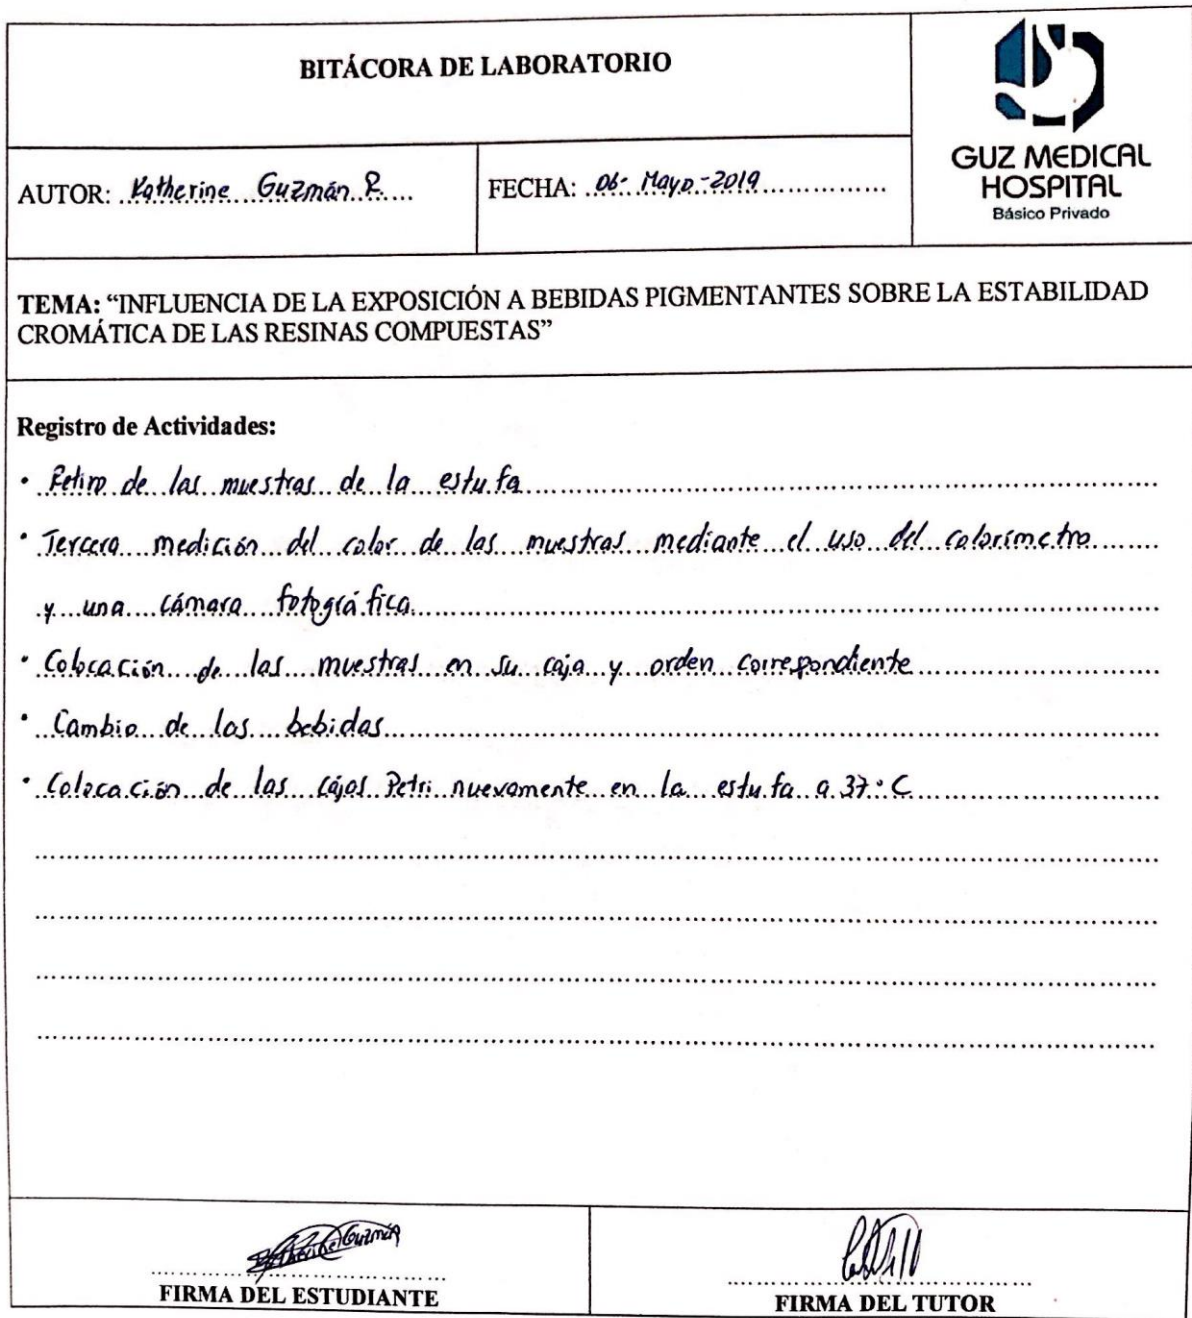 BITÁCORA DE LABORATORIO
GUZ MEDICAL
HOSPITAL
Básico Privado
AUTOR: Katherine Guzmán R.
FECHA: 06- Mayo-2019
TEMA: “INFLUENCIA DE LA EXPOSICIÓN A BEBIDAS PIGMENTANTES SOBRE LA ESTABILIDAD
CROMÁTICA DE LAS RESINAS COMPUESTAS”
Registro de Actividades:
• Retiro de las muestras de la estufa
• Tercera medición del color de las muestras mediante el uso del colorímetro
y una cámara fotográfica
• Colocación de las muestras en su caja y orden correspondiente
• Cambio de las bebidas
• Colocación de las cajas Petri nuevamente en la estufa a 37°C
Katherine Guzmán
FIRMA DEL ESTUDIANTE
FIRMA DEL TUTOR